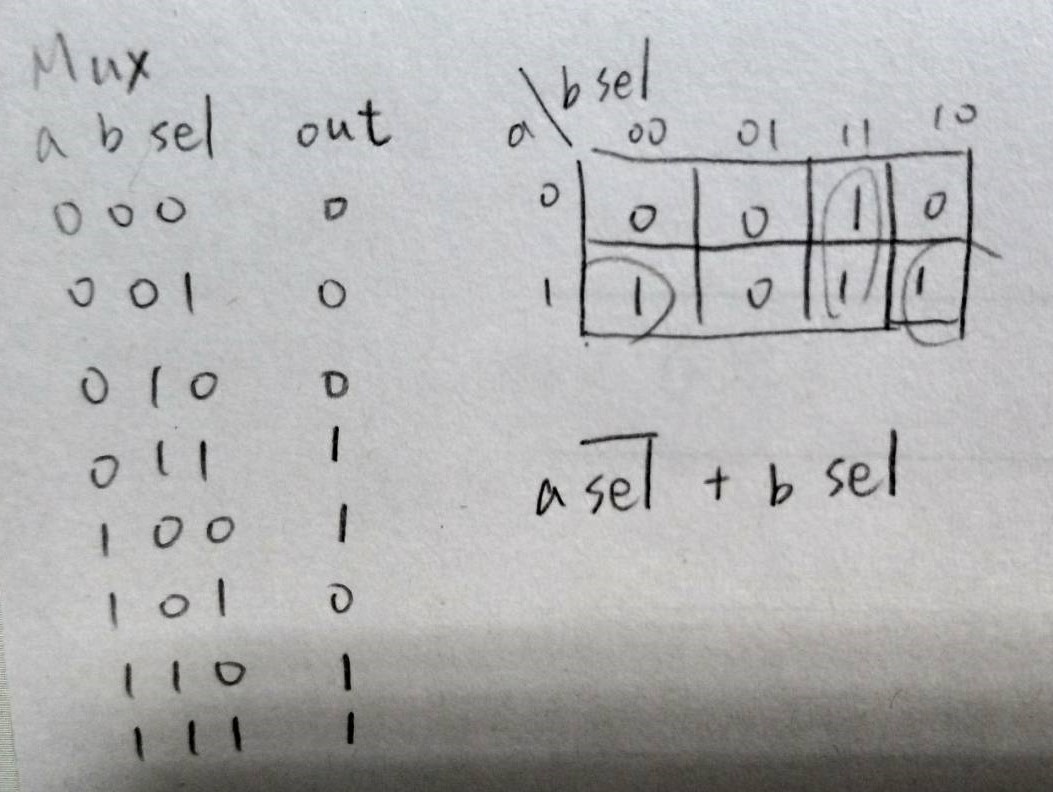 Mux
a b sel out
0 0 0 0
0 0 1 0
0 1 0 0
0 1 1 1
1 0 0 1
1 0 1 0
1 1 0 1
1 1 1 1
a\b sel
00 01 11 10
0 0 0 1 0
1 1 0 1 1
a s̅e̅l̅ + b sel